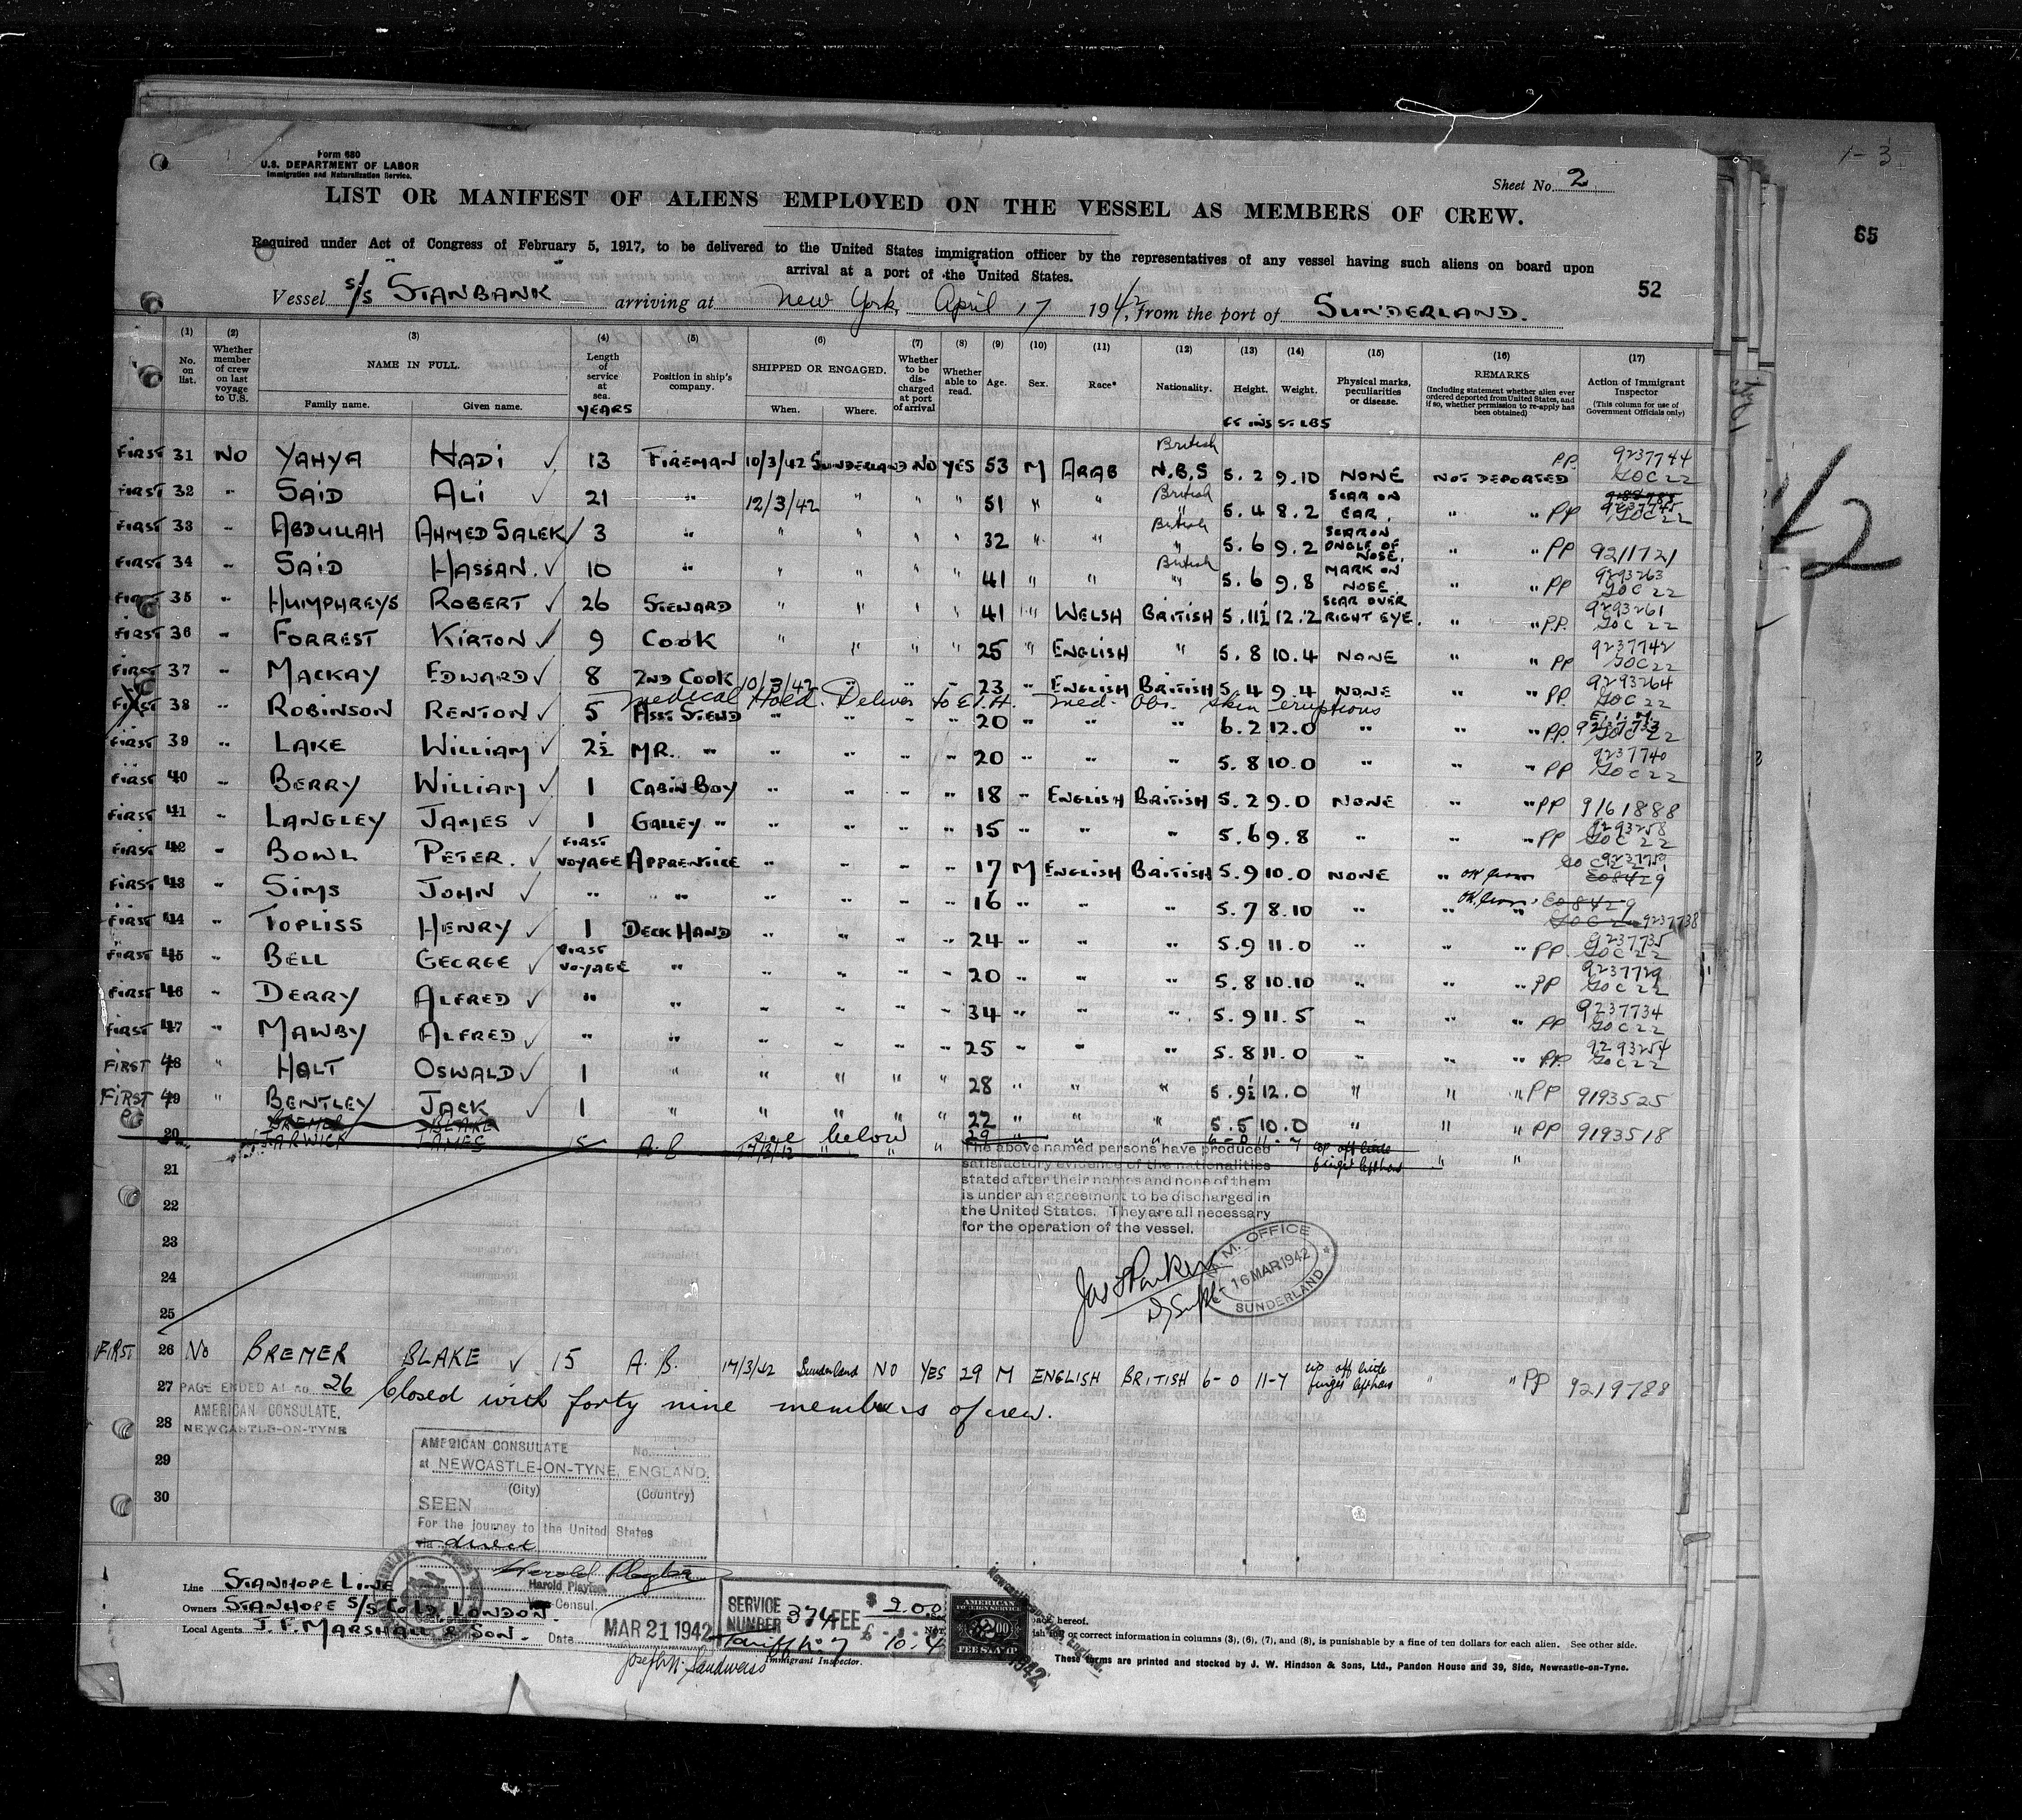 1-3
65
Form 680
U.S. DEPARTMENT OF LABOR
Immigration and Naturalization Service.
Sheet No. 2
LIST OR MANIFEST OF ALIENS EMPLOYED ON THE VESSEL AS MEMBERS OF CREW.
Required under Act of Congress of February 5, 1917, to be delivered to the United States immigration officer by the representatives of any vessel having such aliens on board upon
arrival at a port of the United States.
52
Vessel S/S STANBANK arriving at New York, April 17 1942, from the port of SUNDERLAND.
(1) (2) (3) (4) (5) (6) (7) (8) (9) (10) (11) (12) (13) (14) (15) (16) (17)
No. on list. Whether member of crew on last voyage to U.S. NAME IN FULL. Family name. Given name. Length of service at sea. YEARS Position in ship's company. SHIPPED OR ENGAGED. When. Where. Whether to be discharged at port of arrival Whether able to read. Age. Sex. Race* Nationality. Height. Weight. Physical marks, peculiarities or disease. REMARKS (Including statement whether alien ever ordered deported from United States, and if so, whether permission to re-apply has been obtained) Action of Immigrant Inspector (This column for use of Government Officials only)
FT INS ST. LBS
FIRST 31 NO YAHYA HADI ✓ 13 FIREMAN 10/3/42 SUNDERLAND NO YES 53 M ARAB British N.B.S 5.2 9.10 NONE NOT DEPORTED PP. 9237744 GOC 22
FIRST 32 " SAID ALI ✓ 21 " 12/3/42 " " " 51 " " British " 5.4 8.2 SCAR ON EAR. " " PP 9237745 GOC 22
FIRST 33 " ABDULLAH AHMED SALEK ✓ 3 " " " " " 32 " " British " 5.6 9.2 SCAR ON ANGLE OF NOSE. " " PP 9211721
FIRST 34 " SAID HASSAN. ✓ 10 " " " " " 41 " " British " 5.6 9.8 MARK ON NOSE " " PP 9293263 GOC 22
FIRST 35 " HUMPHREYS ROBERT ✓ 26 STEWARD " " " " 41 " WELSH BRITISH 5.11½ 12.2 SCAR OVER RIGHT EYE. " " P.P. 9293261 GOC 22
FIRST 36 " FORREST KIRTON ✓ 9 COOK " " " " 25 " ENGLISH " 5.8 10.4 NONE " " PP 9237742 GOC 22
FIRST 37 " MACKAY EDWARD ✓ 8 2ND COOK 10/3/42 " " " 23 " ENGLISH BRITISH 5.4 9.4 NONE " " PP. 9293264 GOC 22
Medical Hold. Deliver to E.I.H. Med. Obs. Skin eruptions
FIRST 38 " ROBINSON RENTON ✓ 5 ASST STEWD " " " " 20 " " " 6.2 12.0 " " " PP. GOC 22
FIRST 39 " LAKE WILLIAM ✓ 2½ MR. " " " " " 20 " " " 5.8 10.0 " " " PP 9237740 GOC 22
FIRST 40 " BERRY WILLIAM ✓ 1 CABIN BOY " " " " 18 " ENGLISH BRITISH 5.2 9.0 NONE " " PP 9161888
FIRST 41 " LANGLEY JAMES ✓ 1 GALLEY " " " " " 15 " " " 5.6 9.8 " " " PP 9293258 GOC 22
FIRST 42 " BOWL PETER. ✓ FIRST VOYAGE APPRENTICE " " " " 17 M ENGLISH BRITISH 5.9 10.0 NONE " GOC 22 E08429
FIRST 43 " SIMS JOHN ✓ " " " " " " 16 " " " 5.7 8.10 " " " E08429 9237738
FIRST 44 " TOPLISS HENRY ✓ 1 DECK HAND " " " " 24 " " " 5.9 11.0 " " " PP 9237735 GOC 22
FIRST 45 " BELL GEORGE ✓ FIRST VOYAGE " " " " " 20 " " " 5.8 10.10 " " " PP 9237729 GOC 22
FIRST 46 " DERRY ALFRED ✓ " " " " " " 34 " " " 5.9 11.5 " " " PP 9237734 GOC 22
FIRST 47 " MAWBY ALFRED ✓ " " " " " " 25 " " " 5.8 11.0 " " " PP. 9293254 GOC 22
FIRST 48 " HALT OSWALD ✓ 1 " " " " " 28 " " " 5.9½ 12.0 " " " PP 9193525
FIRST 49 " BENTLEY JACK ✓ 1 " " " " " 22 " " " 5.5 10.0 " " " PP 9193518
BREMER BLAKE see below 29 "
20 JARWICK JAMES 15 A.B. 17/3/42 " " " " " 6-0 11-7 top off little finger left hand " "
The above named persons have produced
satisfactory evidence of the nationalities
stated after their names and none of them
is under an agreement to be discharged in
the United States. They are all necessary
for the operation of the vessel.
21
22
23
24
25
Jas Parker
D/Supt
M. OFFICE
16 MAR 1942
SUNDERLAND
FIRST 26 No BREMER BLAKE ✓ 15 A.B. 17/3/42 Sunderland NO YES 29 M ENGLISH BRITISH 6-0 11-7 top off little finger left hand " " PP 9219788
27 PAGE ENDED AT NO. 26 Closed with forty nine members of crew.
AMERICAN CONSULATE,
NEWCASTLE-ON-TYNE
28
29
30
AMERICAN CONSULATE No.
at NEWCASTLE-ON-TYNE, ENGLAND.
(City) (Country)
SEEN
For the journey to the United States
via direct
Harold Playter
Harold Playter
Vice Consul.
Date MAR 21 1942
Line STANHOPE LINE
Owners STANHOPE S/S Co Ld, LONDON.
Local Agents J. F. MARSHALL & SON.
SERVICE NUMBER 374 FEE $ 2.00
Tariff No 7 £ - 10.4
Joseph N. Sandweiss
Immigrant Inspector.
AMERICAN
FOREIGN SERVICE
FEE STAMP
back hereof.
or correct information in columns (3), (6), (7), and (8), is punishable by a fine of ten dollars for each alien. See other side.
These forms are printed and stocked by J. W. Hindson & Sons, Ltd., Pandon House and 39, Side, Newcastle-on-Tyne.